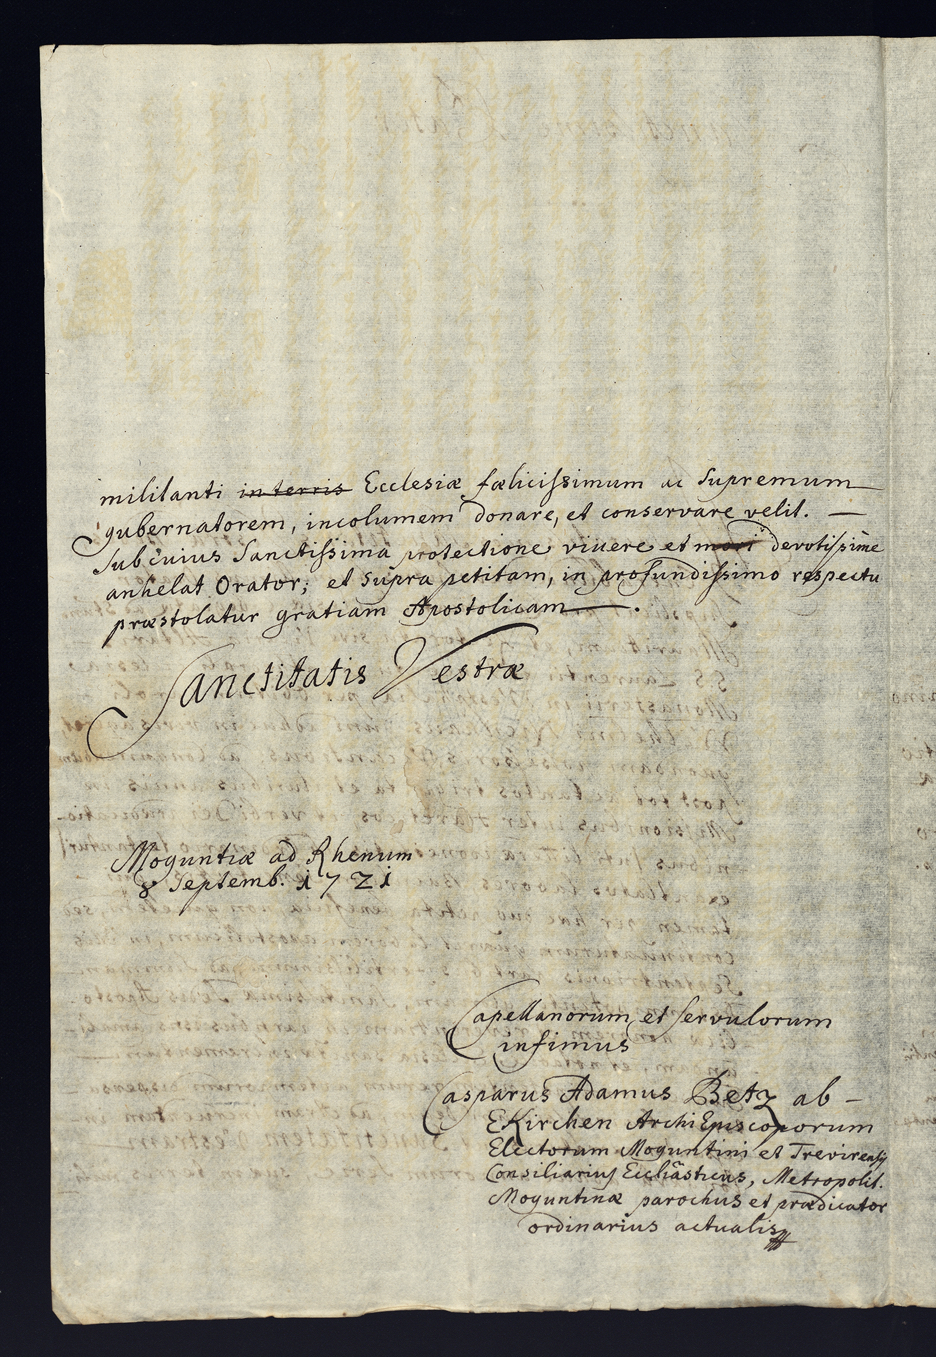 militanti in terris Ecclesiæ fœlicissimum ac Supremum
gubernatorem, incolumem donare, et conservare velit. —
Sub cuius Sanctissima protectione vivere et mori devotissime
anhelat Orator; et supra petitam, in profundissimo respectu
præstolatur gratiam Apostolicam.
Sanctitatis Vestræ
Moguntiæ ad Rhenum
8 Septemb. 1721
Capellanorum et servulorum
infimus
Casparus Adamus Betz ab –
EKirchen ArchiEpiscoporum
Electorum Moguntini et Trevirensis
Consiliarius Ecclīasticus, Metropolit.
Moguntinæ parochus et prædicator
ordinarius actualis